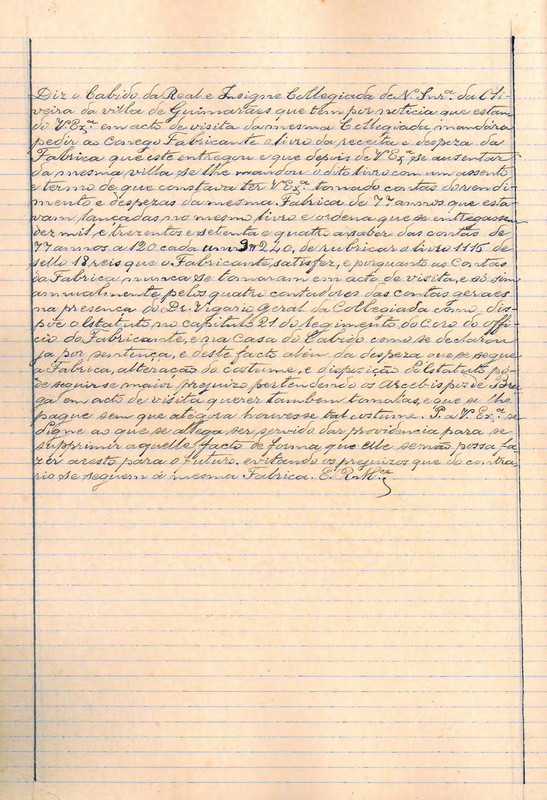 Diz o Cabido da Real e Insigne Collegiada de N. Snr.ª da Oli-
veira da villa de Guimarães que tem por noticia que estan-
do V. Ex.ª em acto de visita da mesma Collegiada, mandára
pedir ao Conego Fabricante o livro da receita e despeza da
Fabrica que este entregou e que depois de V. Ex.ª se ausentar
da mesma villa se lhe mandou o dito livro com um assento
e termo de que constava ter V. Ex.ª tomado contas do rendi-
mento e despezas da mesma Fabrica de 77 annos que esta-
vam lançadas no mesmo livro e ordena que se entregassem
dez mil e trezentos e setenta e quatro a saber das contas de
77 annos a 120 cada um 9$240, de rubricar o livro 1116 de
sello 18 reis que o Fabricante satisfez, e porquanto as Contas
da Fabrica nunca se tomaram em acto de visita, e só sim
annualmente pelos quatro contadores das contas geraes
na presença do Dr. Vigario Geral da Collegiada como dis-
põe o Estatuto no capitulo 21 do regimento do Coro do offi-
cio do Fabricante, e na Casa do Cabido como se declarou
ja por sentença, e deste facto além da despeza que se segue
a Fabrica, alteração do costume, e disposição do Estatuto, pó-
de seguir-se maior prejuizo pertendendo os Arcebispos de Bra-
ga em acto de visita querer tambem tomalas, e que se lhe
pague sem que atégora houvesse tal costume. P. a V. Ex.ª se
digne ao que se allega ser servido dar providencia para se
supprimir aquelle facto de forma que elle senão possa fa-
zer aresto para o futuro, evitando os prejuizos que do contra-
rio se seguem á mesma Fabrica. E. R. M.ce